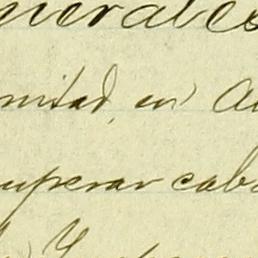 nerales
mitad, en A
uperar cab